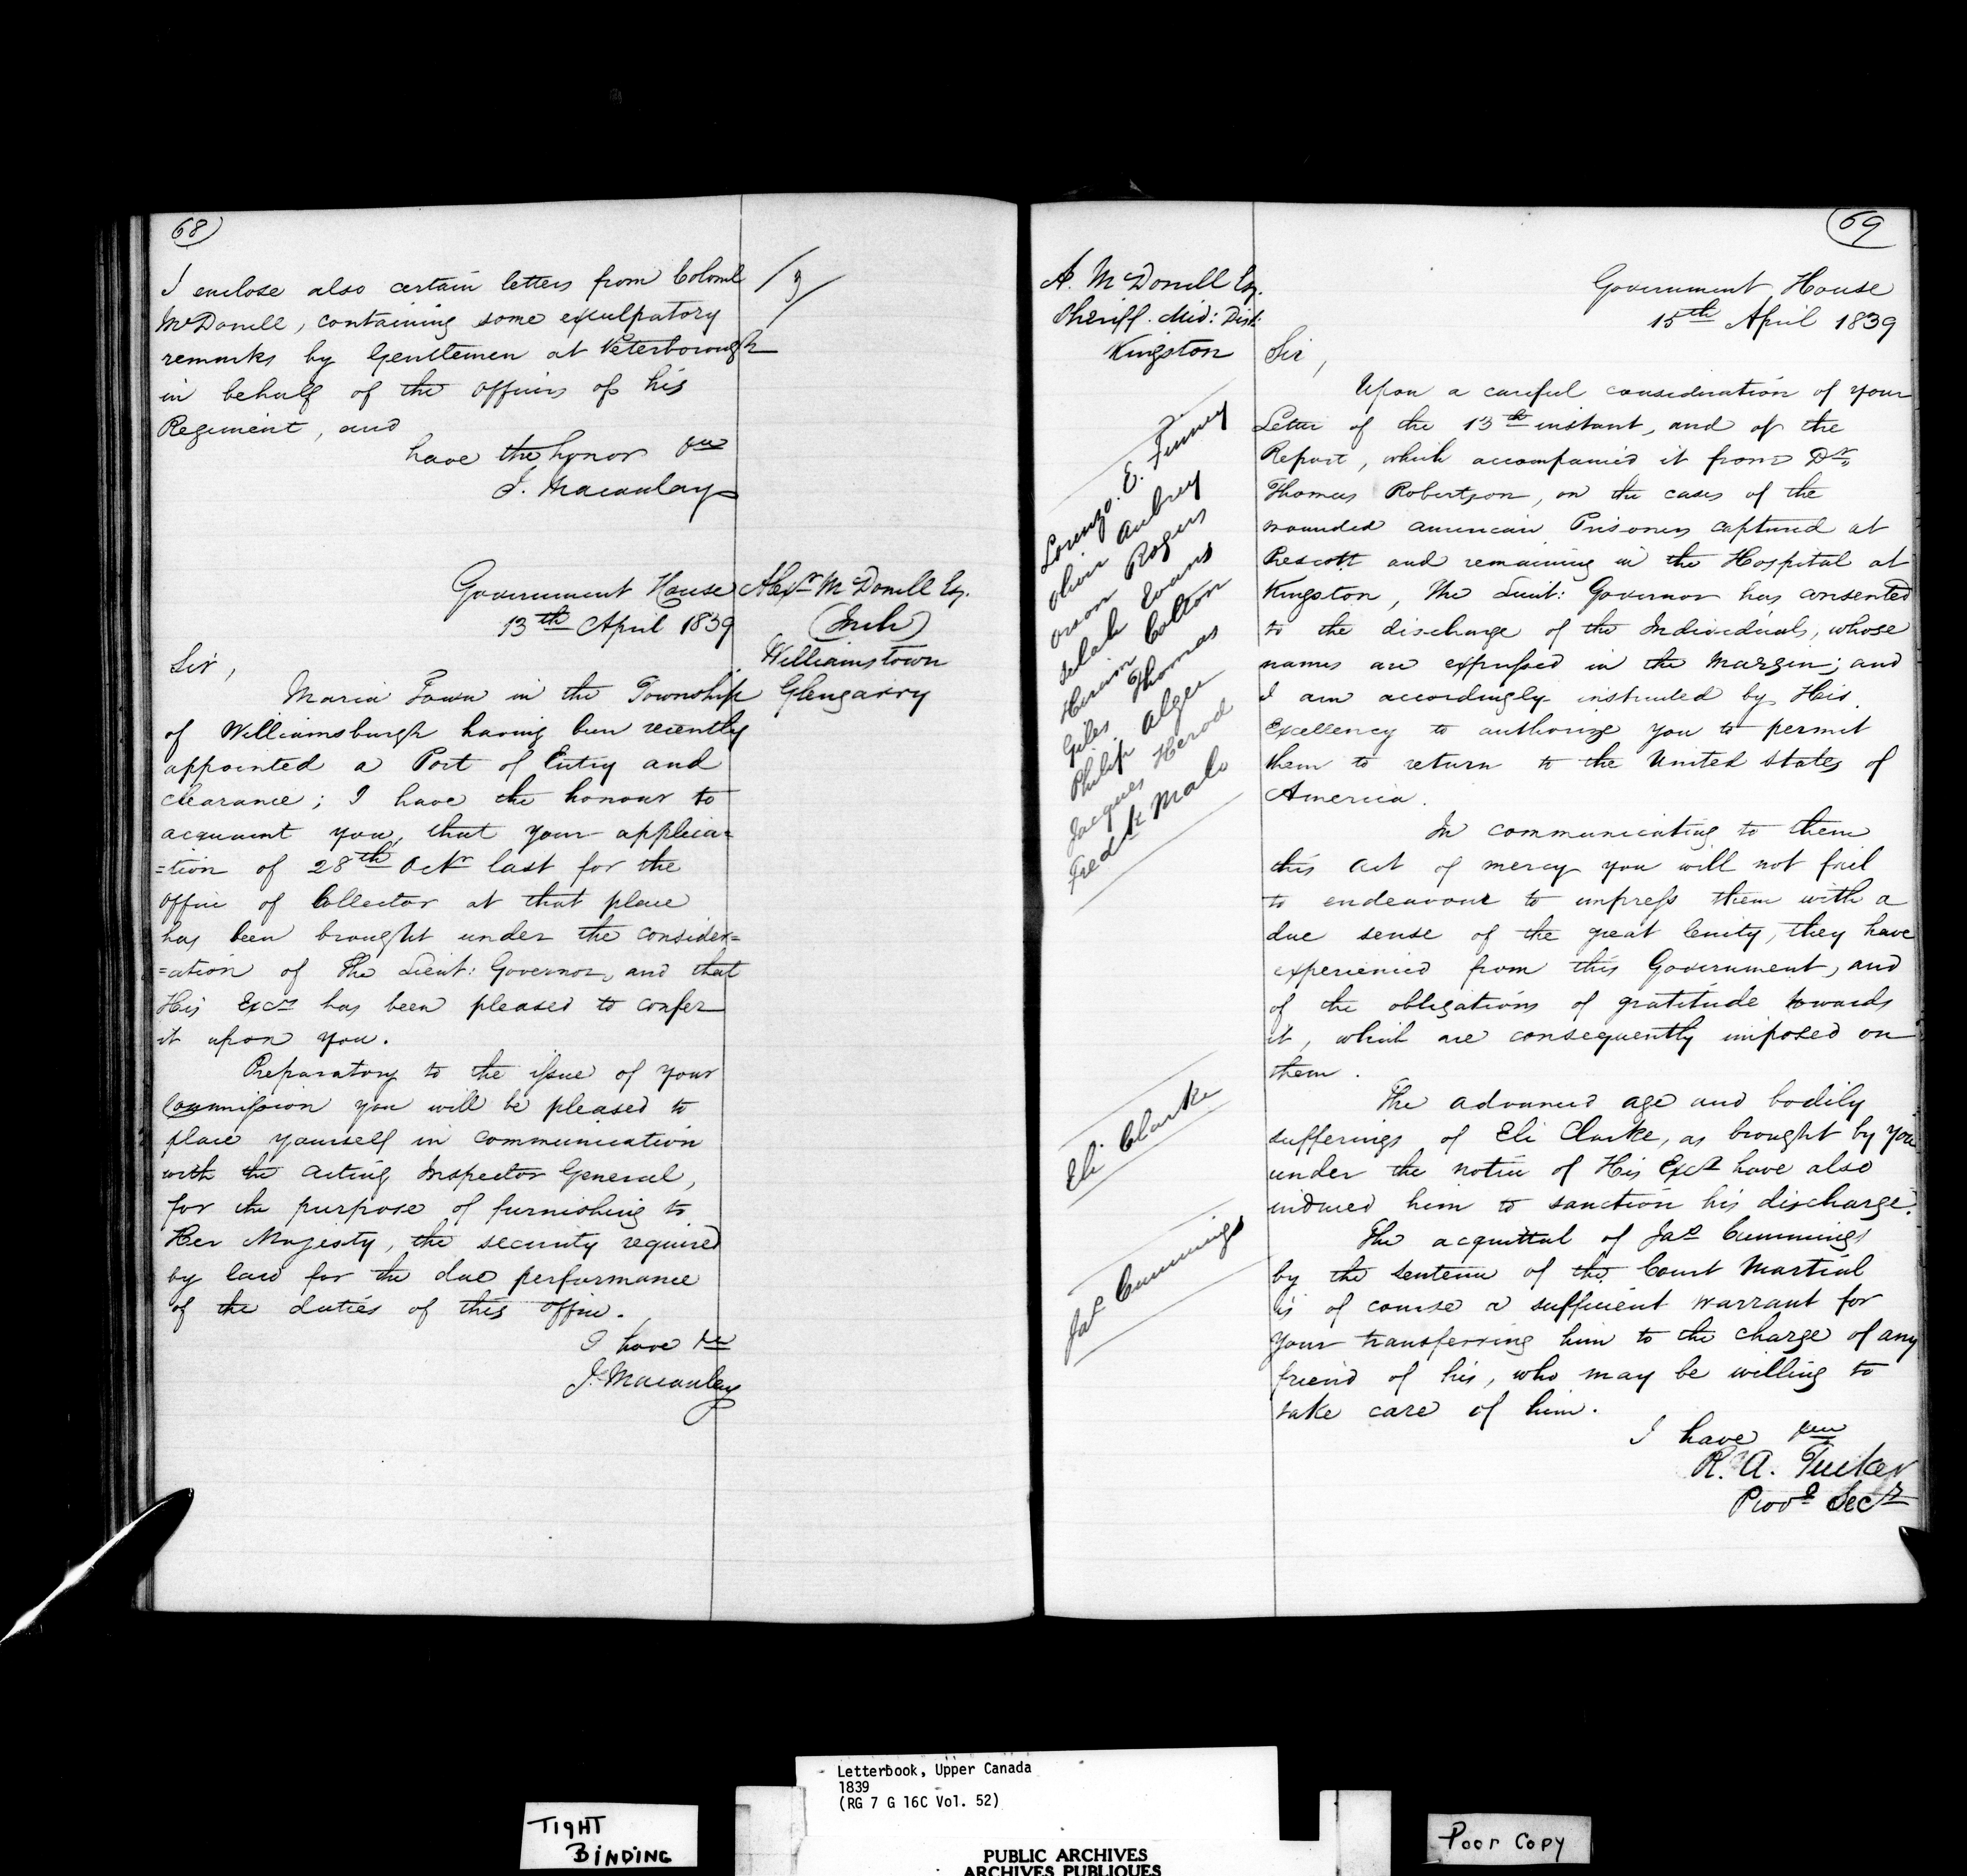 68
I enclose also certain letters from Colonel
McDonell, containing some exculpatory
remarks by Gentlemen at Peterborough
in behalf of the officers of his
Regiment, and
have the honor &c
J. Macaulay
Government House
13th April 1839
Alexr McDonell Esq.
Williamstown
Glengarry
Sir,
Maria Town in the Township
of Williamsburgh having been recently
appointed a Port of Entry and
clearance; I have the honour to
acquaint you, that your applica=
=tion of 28th Octr last for the
office of Collector at that place
has been brought under the consider=
=ation of The Lieut: Governor, and that
His Excy has been pleased to confer
it upon you.
Preparatory to the issue of your
Commission you will be pleased to
place yourself in communication
with the acting Inspector General,
for the purpose of furnishing to
Her Majesty, the security required
by law for the due performance
of the duties of this office.
I have &c
J. Macaulay
69
A. McDonell Esq.
Sheriff. Mid: Dist:
Kingston
Government House
15th April 1839
Sir,
Upon a careful consideration of your
Letter of the 13th instant, and of the
Report, which accompanied it from Dr.
Thomas Robertson, on the cases of the
wounded American Prisoners captured at
Prescott and remaining in the Hospital at
Kingston, The Lieut: Governor has consented
to the discharge of the Individuals, whose
names are expressed in the margin; and
I am accordingly instructed by His
Excellency to authorize you to permit
them to return to the United States of
America.
Lorenzo. E. Finney
Olivir Aubrey
Orson Rogers
Selah Evans
Hiram Colton
Giles Thomas
Philip Alger
Jacques Herod
Fredk Malo
In communicating to them
this act of mercy you will not fail
to endeavour to impress them with a
due sense of the great lenity, they have
experienced from this Government, and
of the obligations of gratitude towards
it, which are consequently imposed on
them.
Eli Clarke
The advanced age and bodily
sufferings of Eli Clarke, as brought by you
under the notice of His Excy have also
induced him to sanction his discharge.
Jas Cummings
The acquittal of Jas Cummings
by the sentence of the Court Martial
is of course a sufficient warrant for
your transferring him to the charge of any
friend of his, who may be willing to
take care of him.
I have &c
R. A. Tucker
Provl Secy
Letterbook, Upper Canada
1839
(RG 7 G 16C Vol. 52)
TIGHT
BINDING
Poor Copy
PUBLIC ARCHIVES
ARCHIVES PUBLIQUES